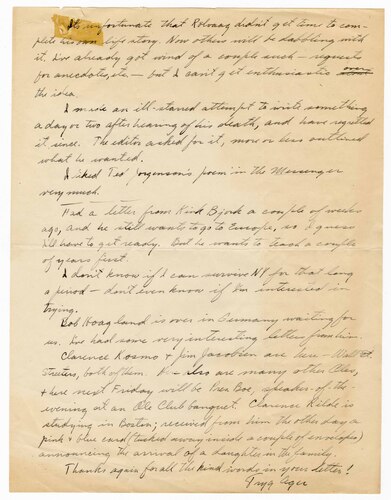 It's unfortunate that Rolvaag didn't get time to com-
plete his own life story. Now others will be dabbling with
it. I've already got wind of a couple such — requests
for anecdotes, etc — but I can't get enthusiastic over
the idea.
I made an ill-starred attempt to write something
a day or two after hearing of his death, and have regretted
it since. The editor asked for it, more or less outlined
what he wanted.
I liked Ted Jorgenson's poem in the Messenger
very much.
Had a letter from Kirk Bjork a couple of weeks
ago, and he still wants to go to Europe, so I guess
I'll have to get ready. But he wants to teach a couple
of years first.
I don't know if I can survive NY for that long
a period — don't even know if I'm interested in
trying.
Bob Hoagland is over in Germany waiting for
us. I've had some very interesting letters from him.
Clarence Kosmo & Jim Jacobsen are here — Wall St.
Streeters, both of them. also are many other Oles,
& here next Friday will be Pres Boe, speaker-of-the-
evening at an Ole Club banquet. Clarence Kilde is
studying in Boston; received from him the other day a
pink & blue card (tucked away inside a couple of envelopes)
announcing the arrival of a daughter in the family.
Thanks again for all the kind words in your letter!
Tryg